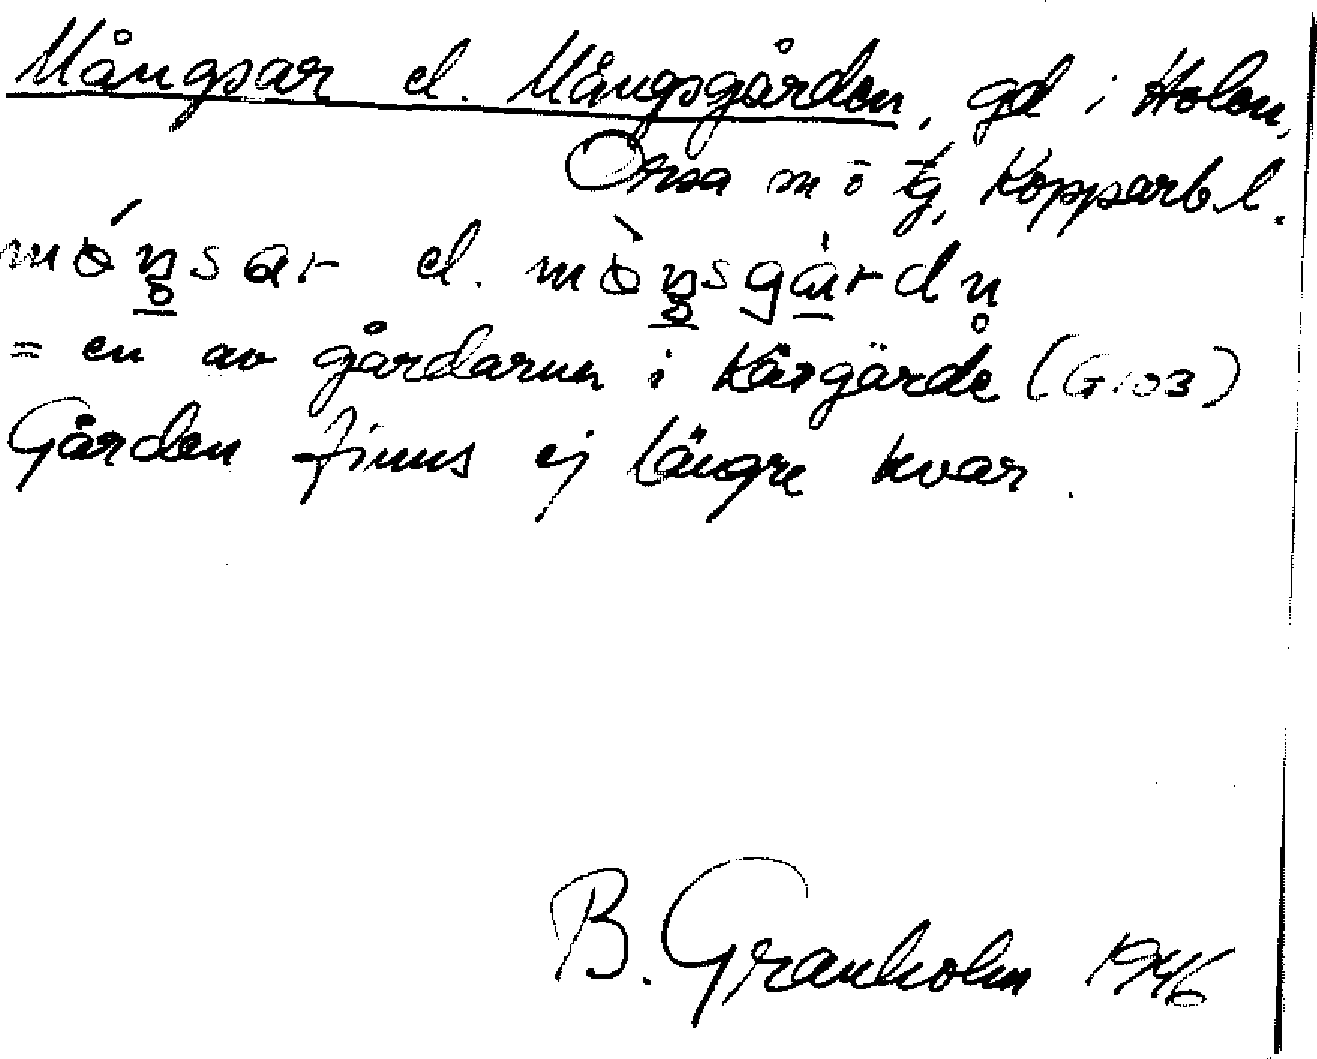 Mångsar el. Mångsgården, gd i Holen,
Orsa sn o tg, Kopparb l.
= en av gårdarna i Kårgärde (G103)
Gården finns ej längre kvar.
B. Granholm 1946